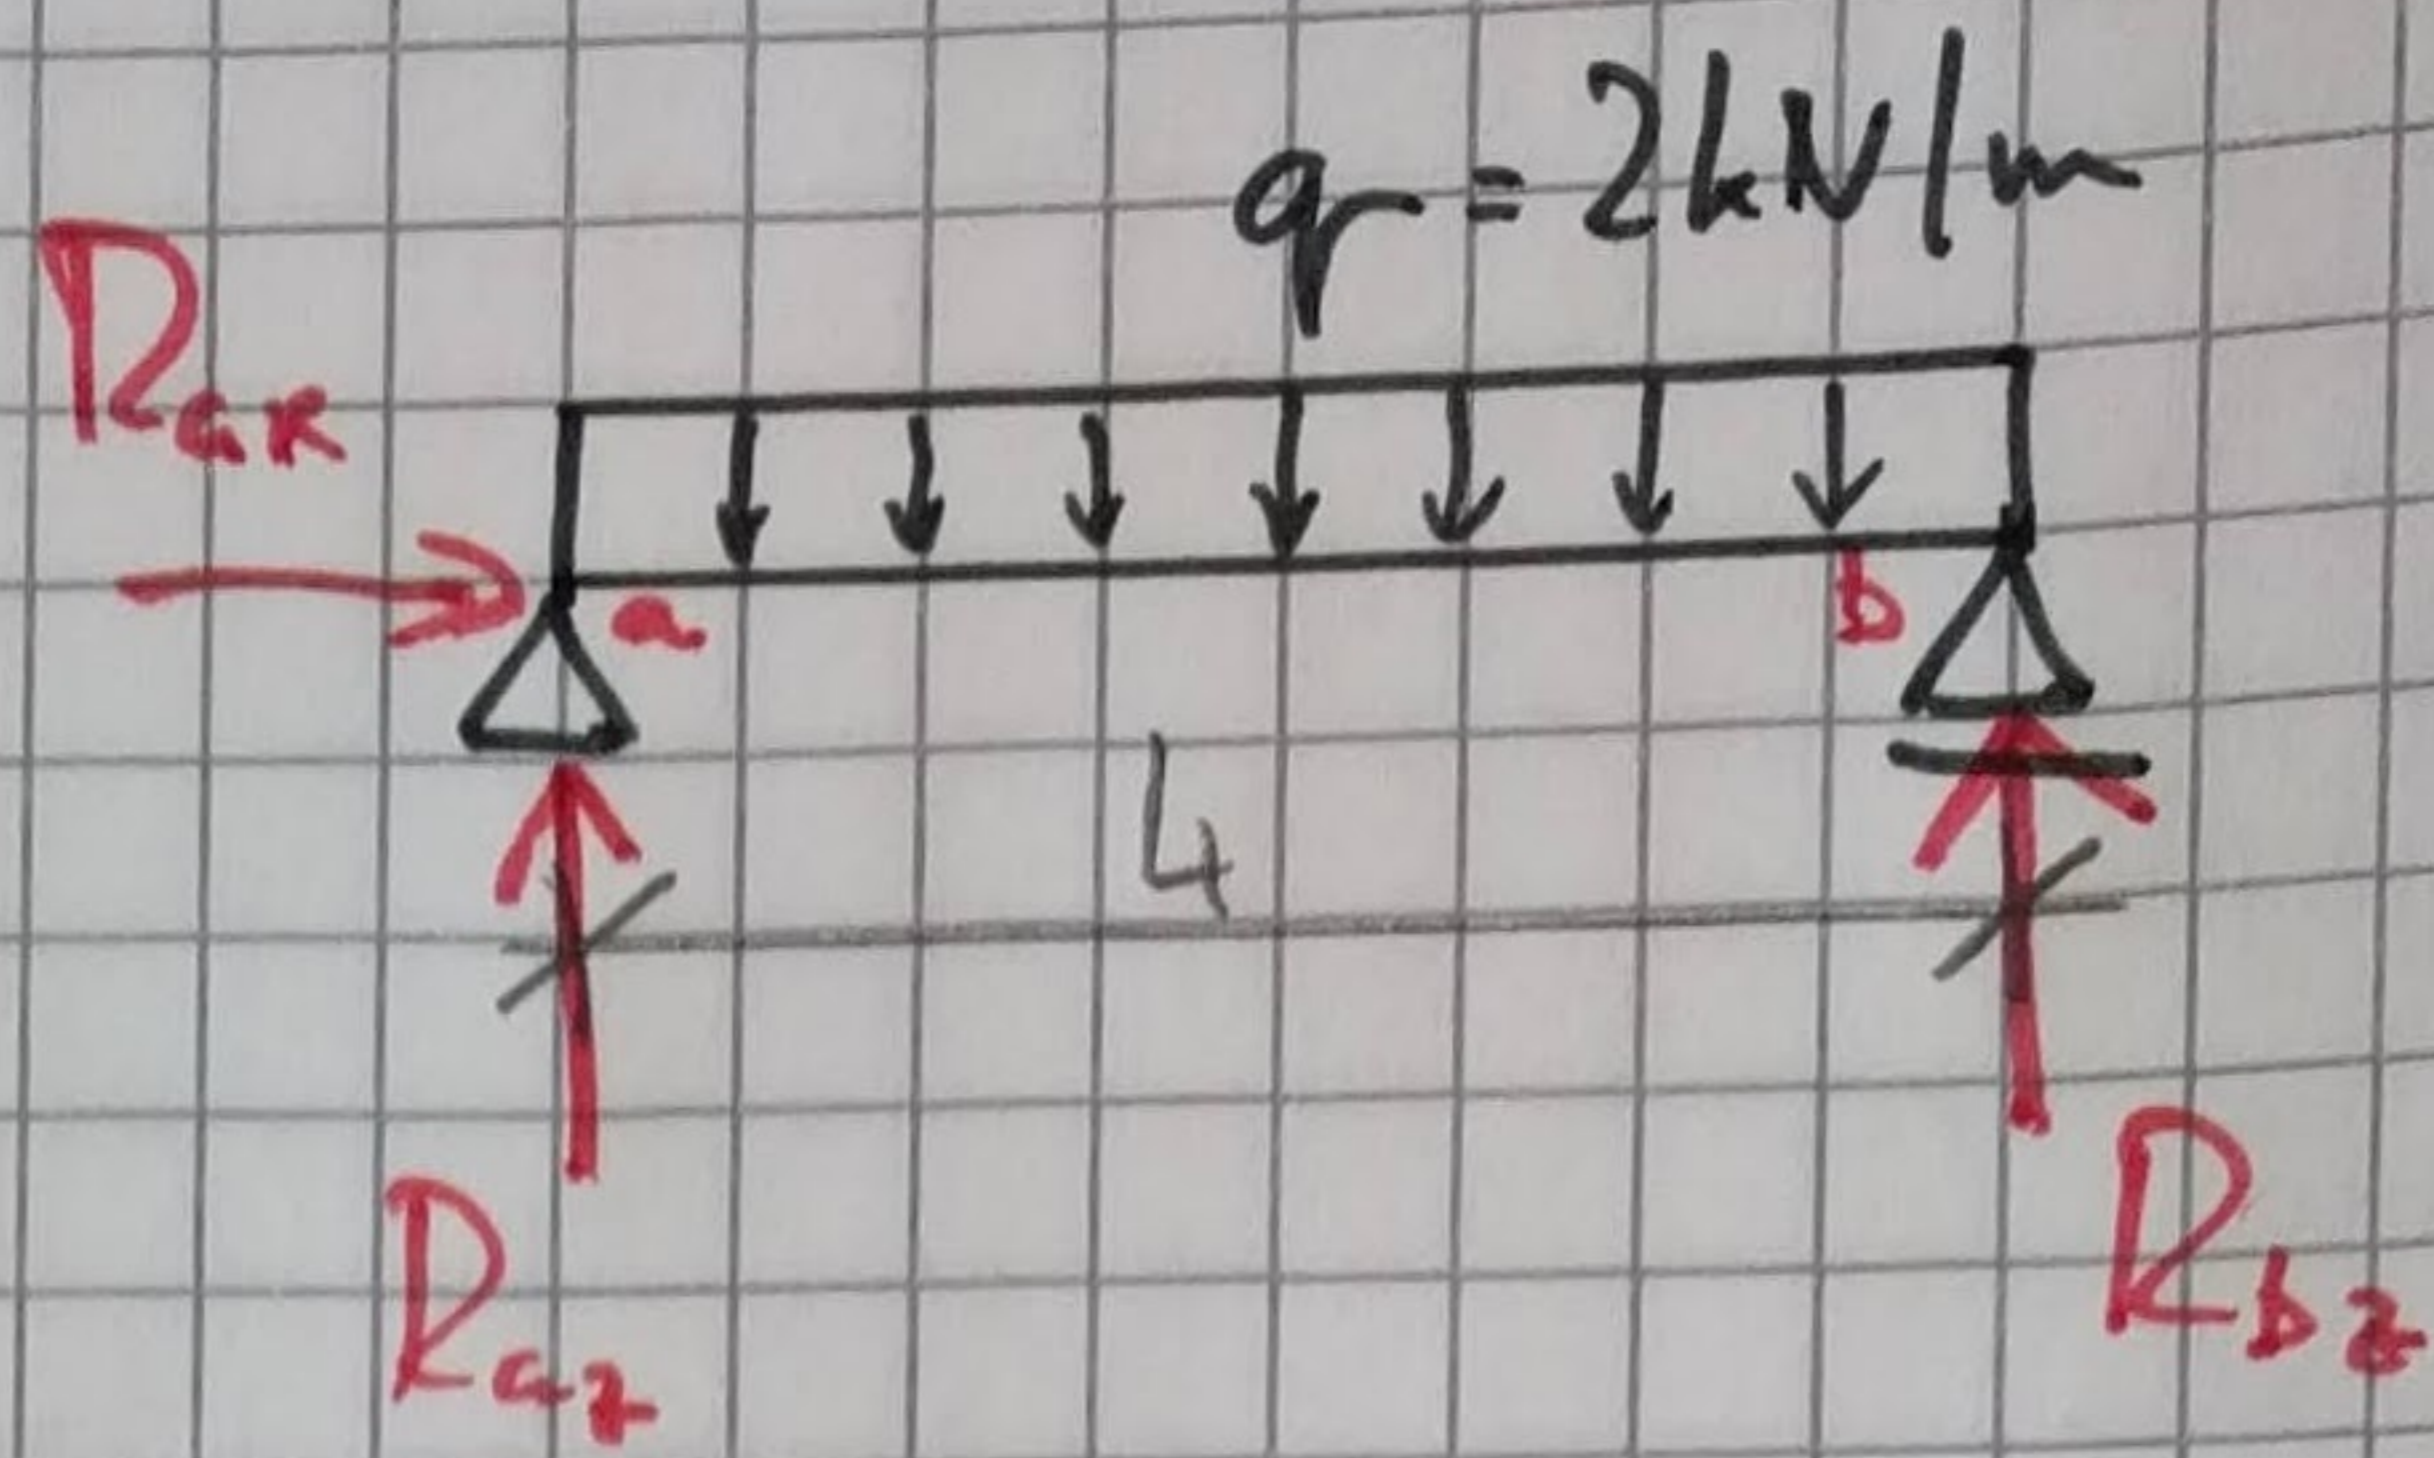 q = 2kN/m
Rax
a
b
4
Raz
Rbz